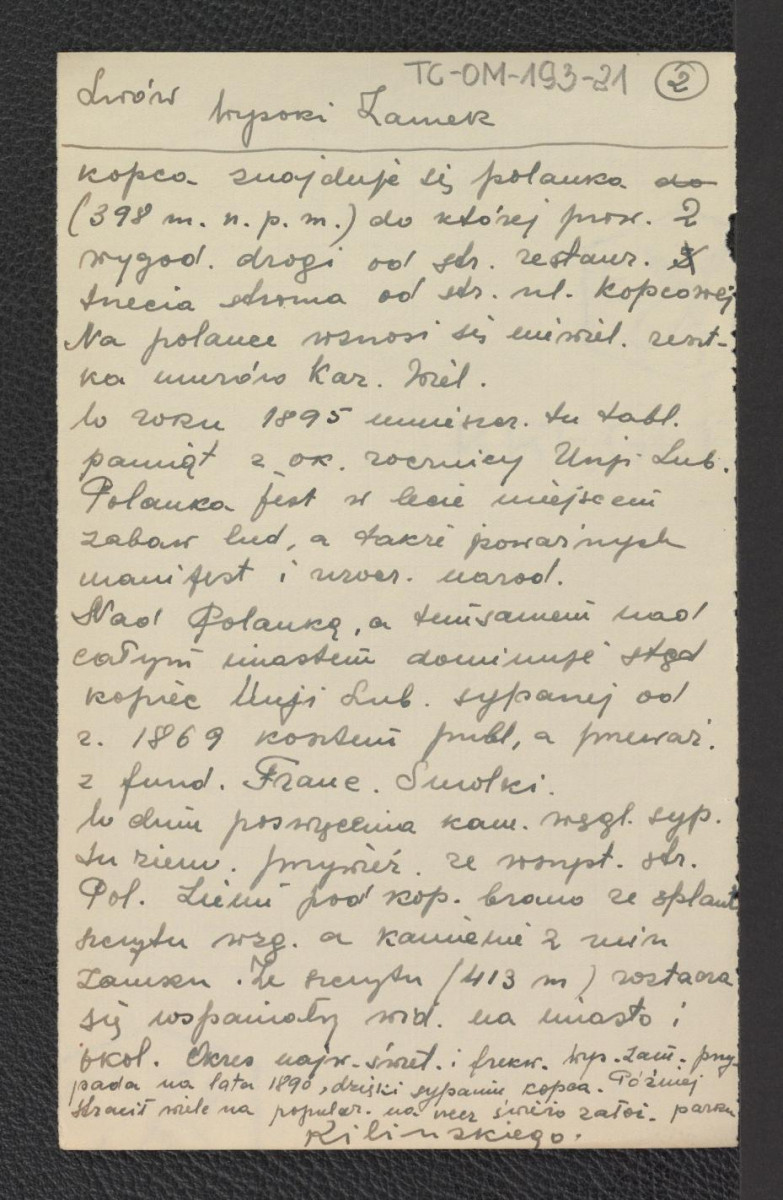 TC-OM-193-21 2
Lwów
Wysoki Zamek
kopca znajduje się polanka do
(398 m. n. p. m.) do której prow. 2
wygod. drogi od str. restaur. 2
trzecia stroma od str. ul. Kopcowej
Na polance wznosi się niewiel. reszt-
ka murów Kaz. Wiel.
W roku 1895 umieszcz. tu tabl.
pamiąt z ok. rocznicy Unji Lub.
Polanka jest w lecie miejscem
zabaw lud, a także poważnych
manifest i urocz. narod.
Nad Polanką, a temsamem nad
całym miastem dominuje stąd
kopiec Unji Lub. sypanej od
r. 1869 kosztem publ, a przeważ.
z fund. Franc. Smolki.
W dniu poswięcenia kam. węgl. syp.
tu ziem. przywież. ze wszyst. str.
Pol. Ziemi pod kop. brano ze splant
szczytu wzg. a kamienie z ruin
zamku. Ze szczytu (413 m) roztacza
się wspaniały wid. na miasto i
okol. Okres najw. świet. i frekw. Wys. Zam. przy-
pada na lata 1890, dzięki sypaniu kopca. Później
stracił wiele na popular. na rzecz świeżo założ. parku
Kilinskiego.